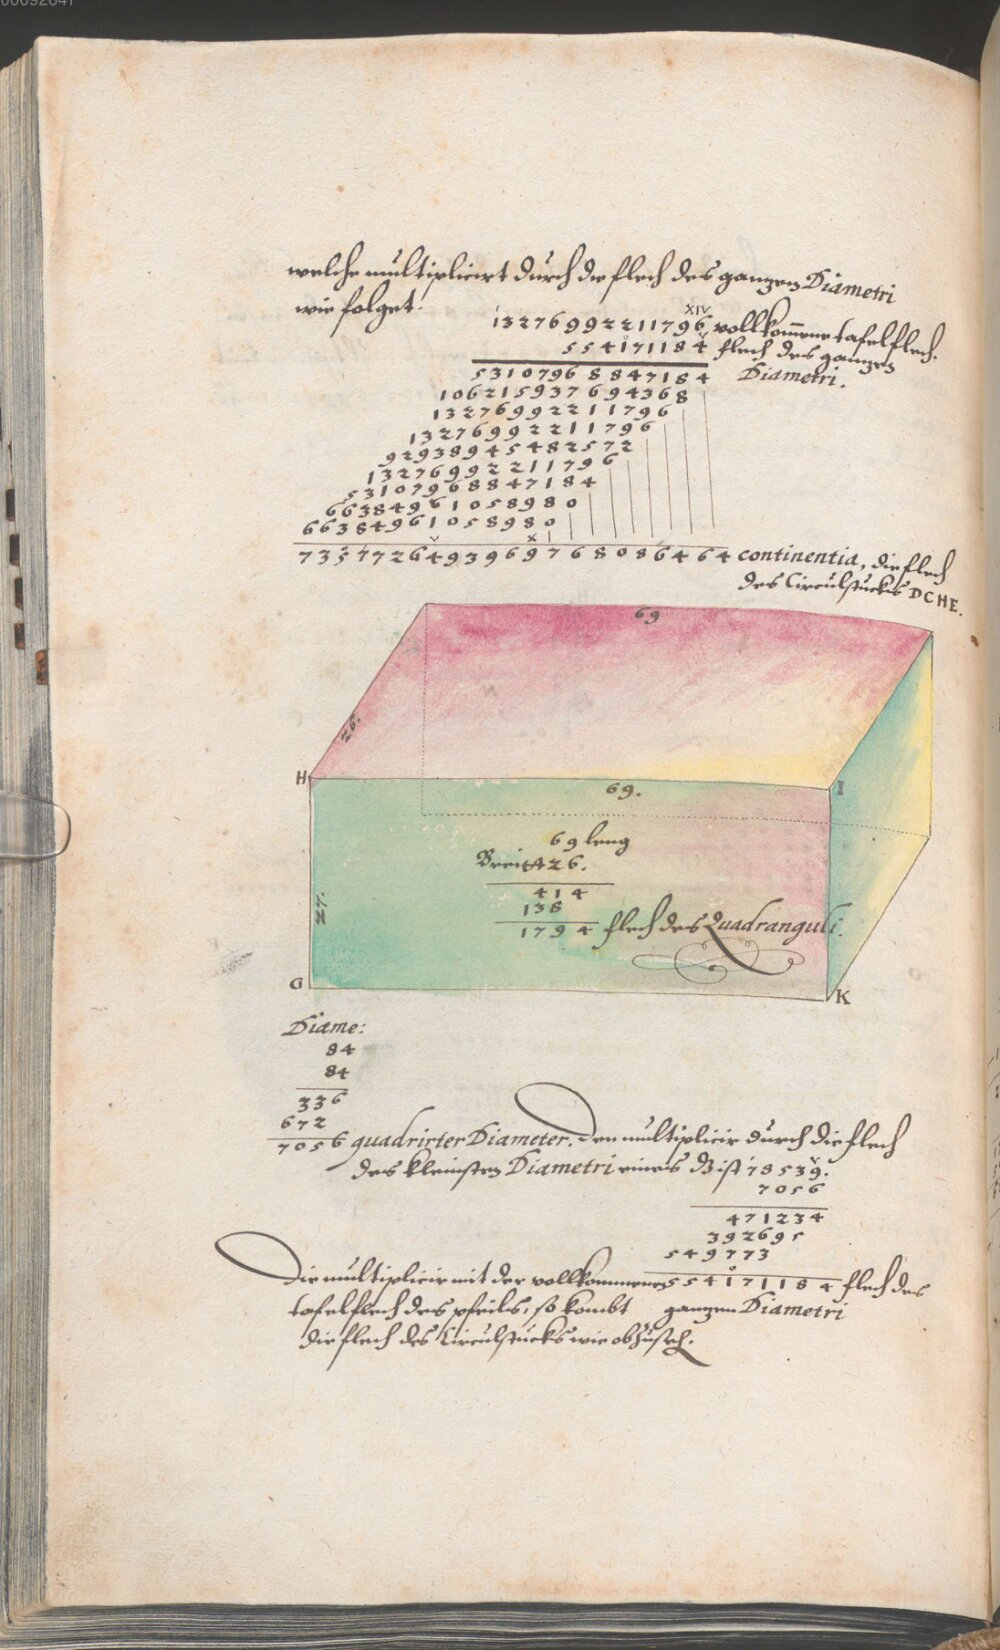 00092641
welche multiplicirt durch die flech des ganzen Diametri
wie folget.
XIV
13276992211796 vollkom̄ene tafelflech.
554171184 flech des ganzen
Diametri.
53107968847184
106215937694368
13276992211796
13276992211796
92938945482572
13276992211796
53107968847184
66384961058980
66384961058980
73577264939697680864 64 continentia, die flech
des Circulstucks DCHE.
69
26.
H
69.
I
69 leng
Breitt 26.
414
138
1794 flech des Quadranguli.
27.
G
K
Diame:
84
84
336
672
7056 quadrirter Diameter. Den multiplicir durch die flech
des kleinsten Diametri eines ist 78539.
7056
471234
392695
549773
Die multiplicir mit der vollkommenen 554171184 flech des
tafelflech des pfeils, so kombt ganzen Diametri
die flech des Circulstucks wie ob